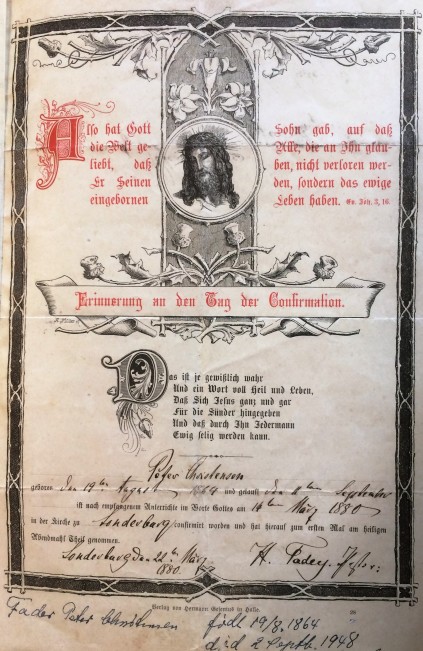 Also hat Gott
die Welt ge-
liebt, daß
Er Seinen
eingebornen
Sohn gab, auf daß
Alle, die an Ihn gläu-
ben, nicht verloren wer-
den, sondern das ewige
Leben haben. Ev. Joh. 3, 16.
Erinnerung an den Tag der Confirmation.
Das ist je gewißlich wahr
Und ein Wort voll Heil und Leben,
Daß Sich Jesus ganz und gar
Für die Sünder hingegeben
Und daß durch Ihn Jedermann
Ewig selig werden kann.
Peter
geboren den 19ten August 1864 und getauft den September
ist nach empfangenem Unterrichte im Worte Gottes am 14ten März 1880
in der Kirche zu Sonderburg confirmiert worden und hat hierauf zum ersten Mal am heiligen
Abendmahl Theil genommen.
Sonderburg den 22ten März
1880.
Verlag von Hermann Gesenius in Halle.
Fader Peter født 19/8. 1864
død 2 Septb. 1948